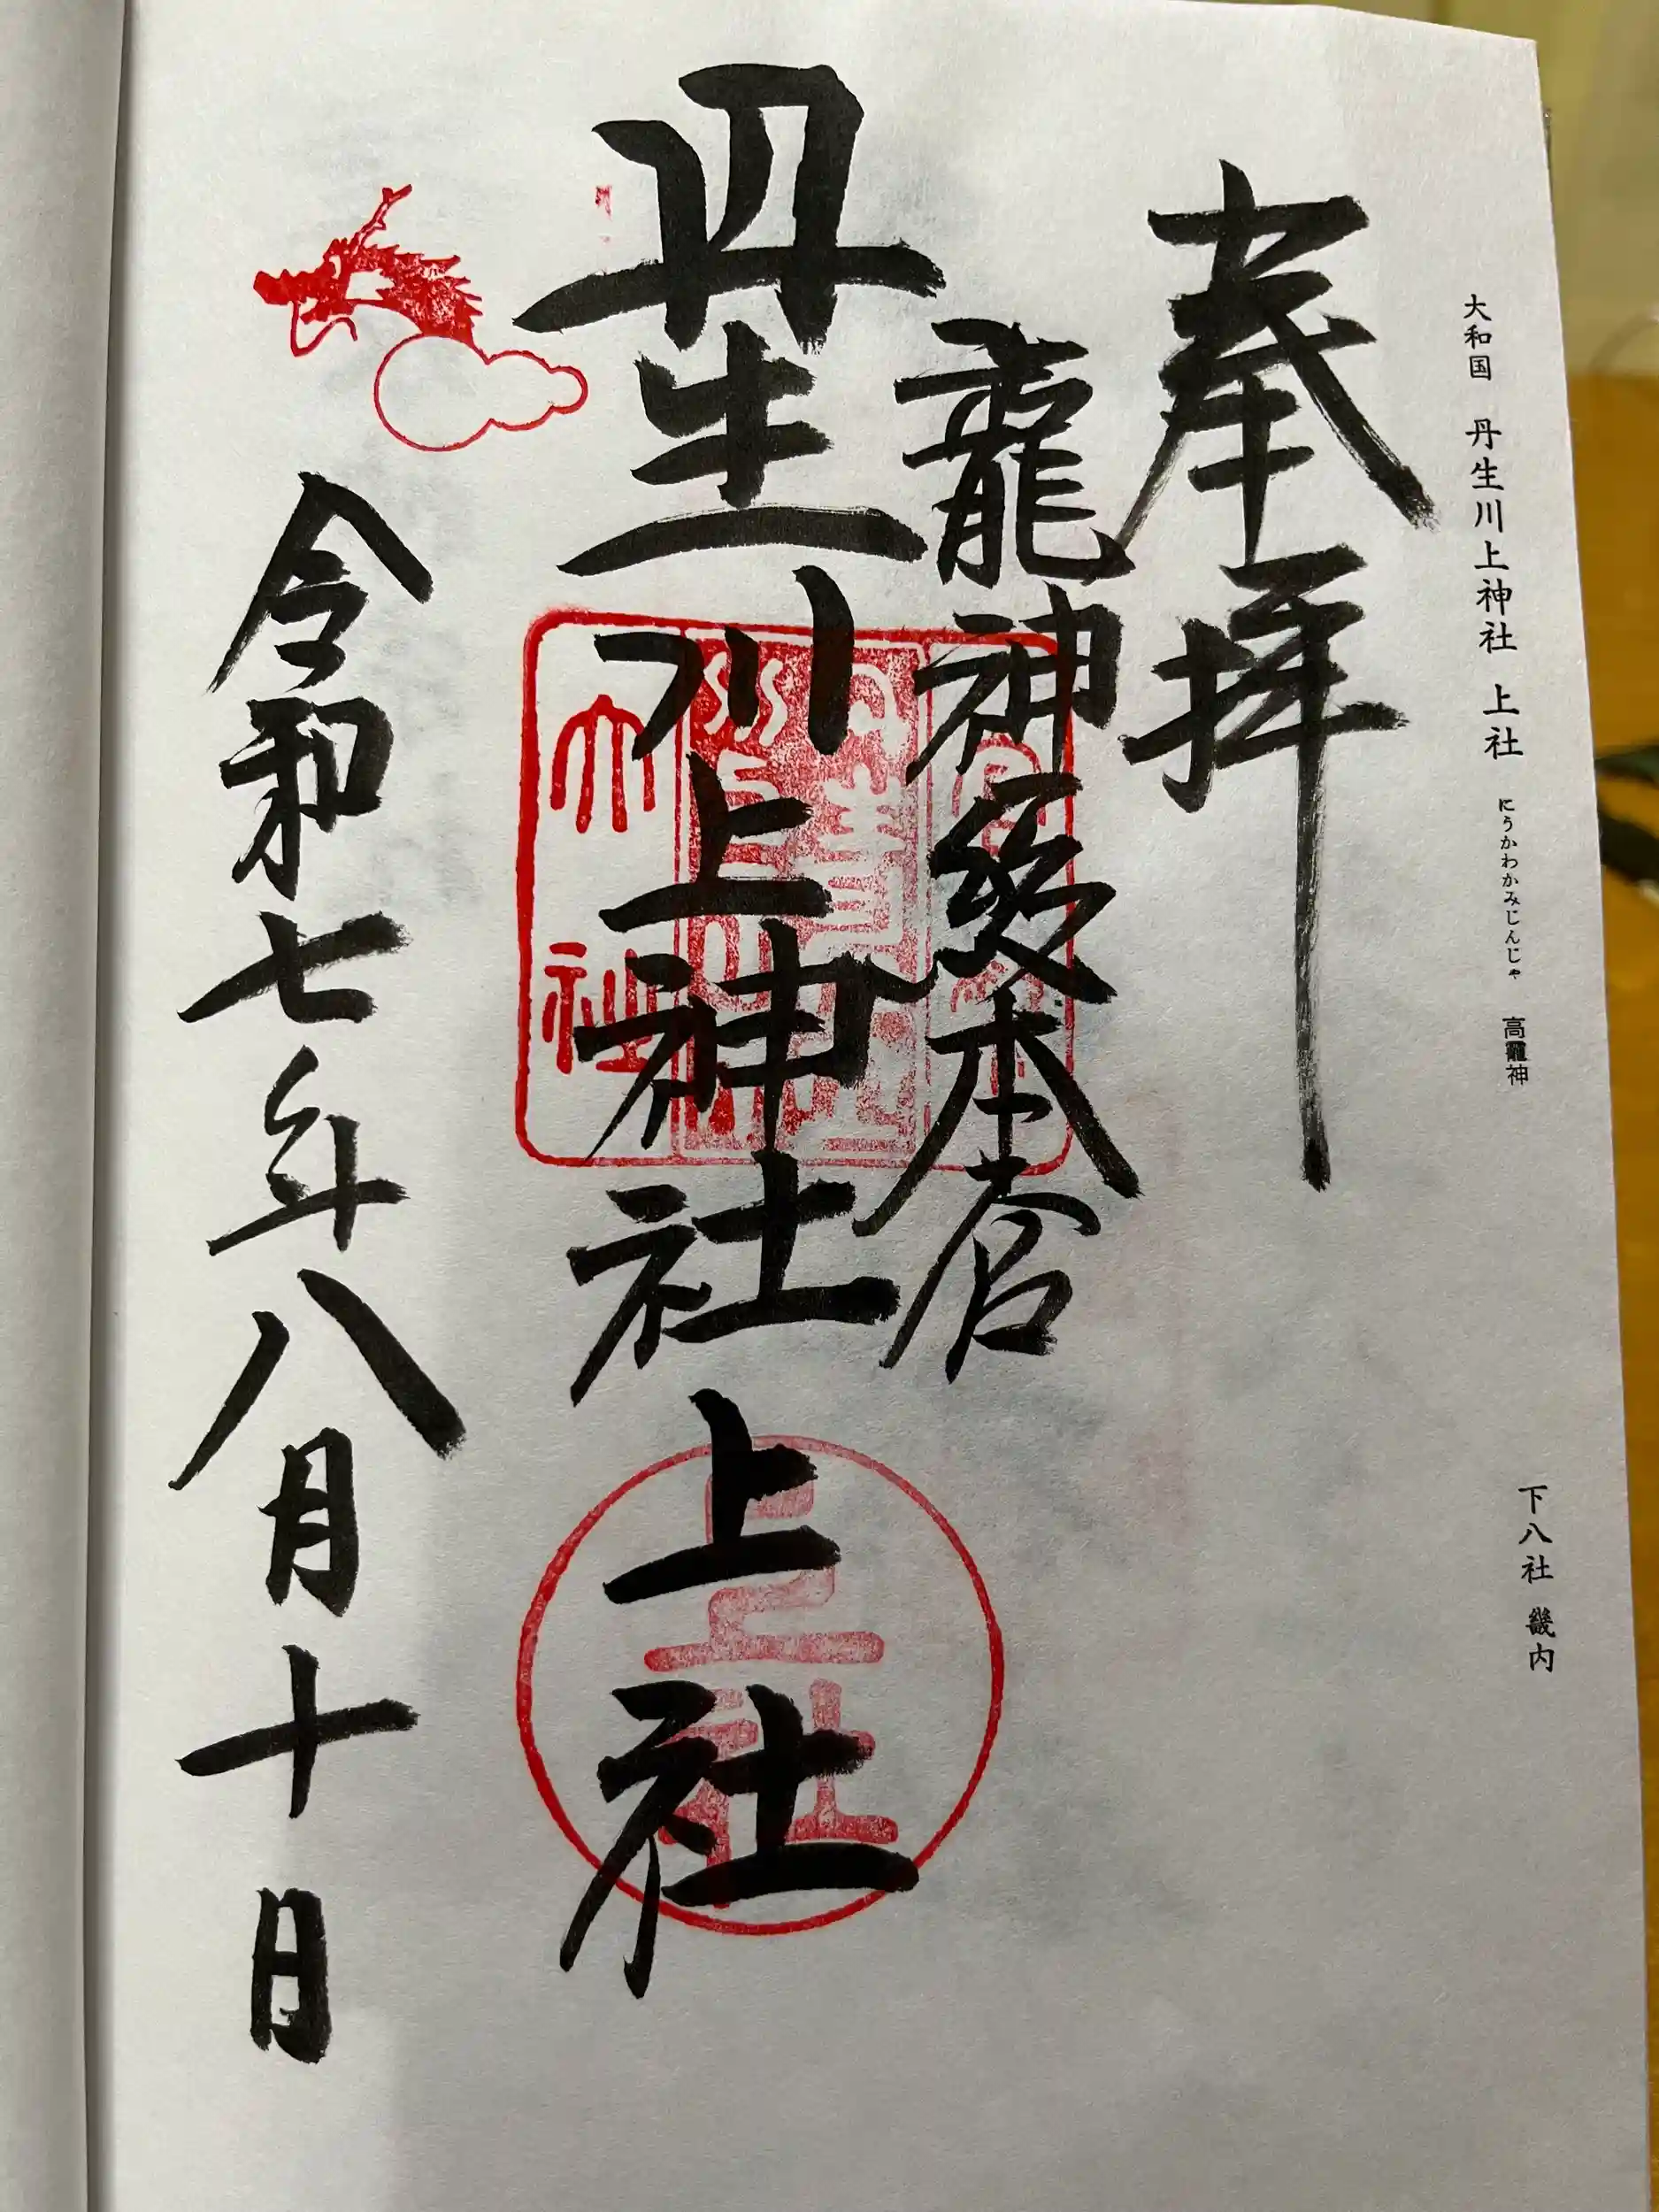 大和国 丹生川上神社 上社 にうかわかみじんじゃ 高龗神
下八社 畿内
奉拝
龍神総本宮
丹生川上神社 上社
令和七年八月十日
大社
上社